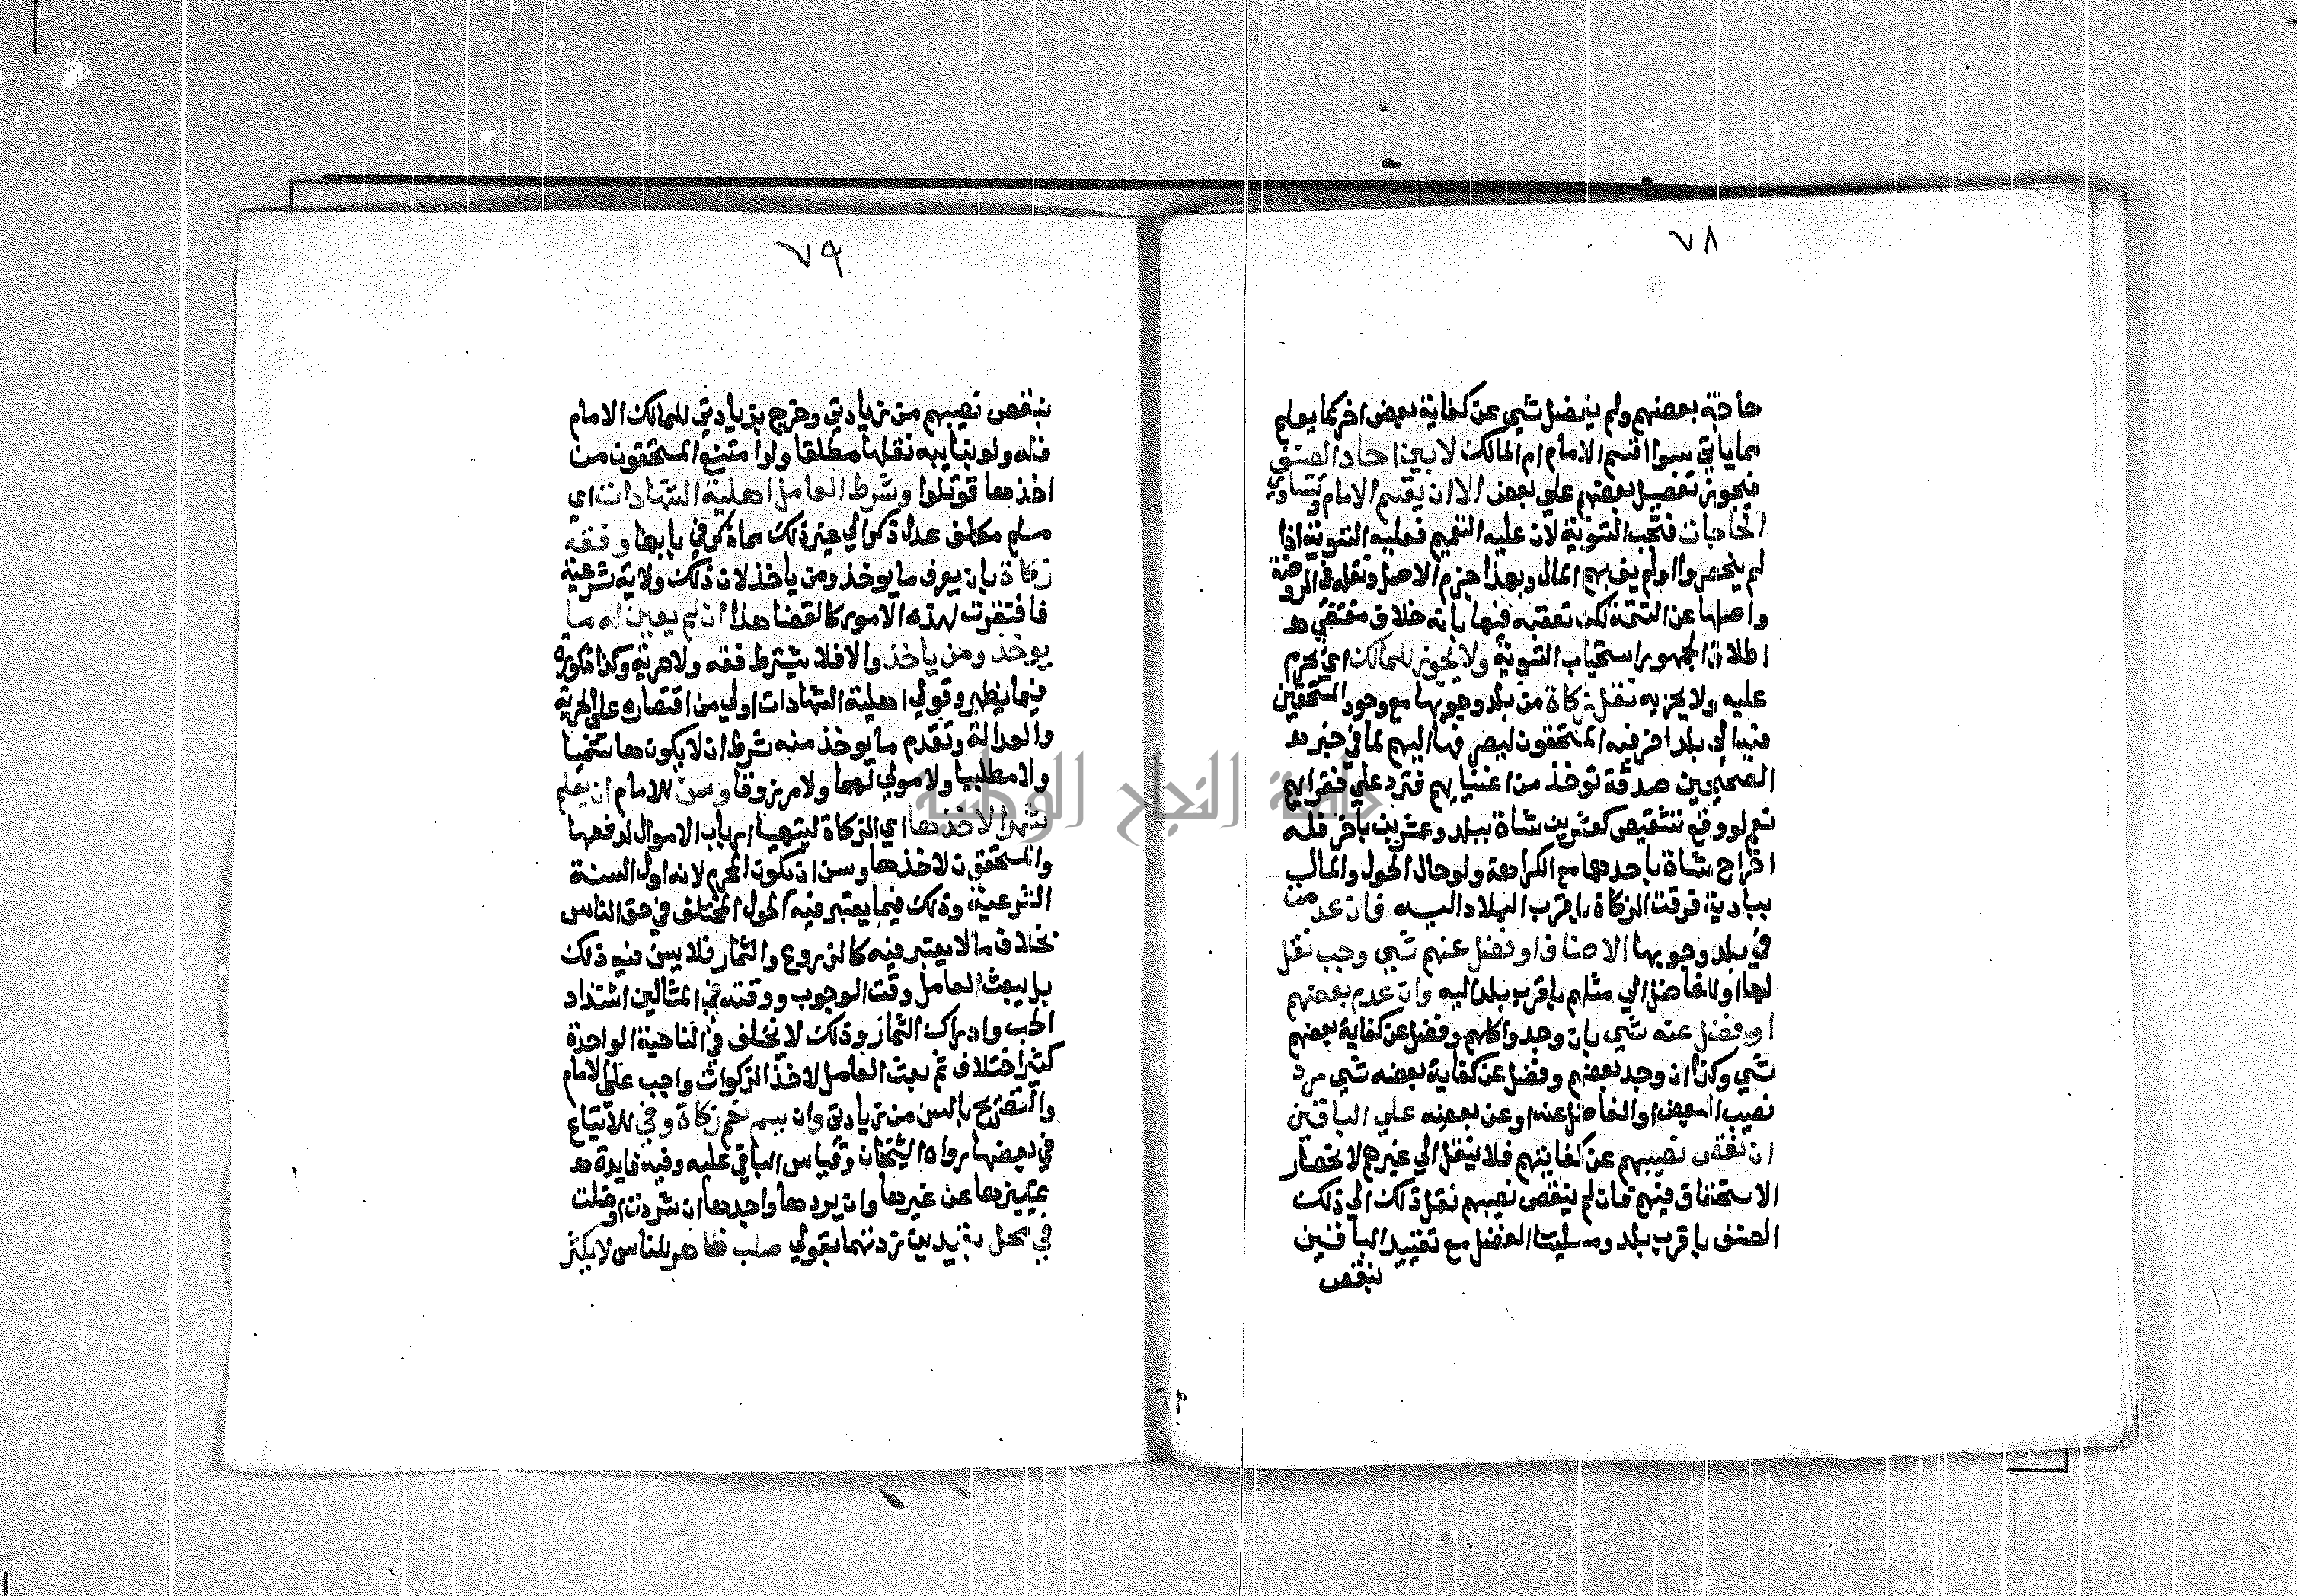 ٧٨
حاجة بعضهم ولم يفضل شي عن كفاية بعض اخر كما يعلم
مما ياتي سوا اقسم الامام ام المالك لا بين احاد الصنف
فيجوز تفضيل بعضهم علي بعض الا ان يقسم الامام وتتساوي
الحاجات فتجب التسوية لان عليه التعميم فعليه التسوية اذا
لم ينحصروا اولم يف بهم المال وبهذا جزم الاصل ونقله في الروضة
واصلها عن التتمة لكن تعقبه فيها بانه خلاف مقتضي
اطلاق الجمهور استحباب التسوية ولا يجوز للمالك اي يحرم
عليه ولا يجزيه نقل زكاة من بلد وجوبها مع وجود المستحقين
فيه الي بلد اخر فيه المستحقون ليصرفها اليهم لما في خبر
الصحيحين صدقة توخذ من اغنيايهم فترد علي فقرايهم
نعم لو وقع تشقيص كعشرين شاة ببلد وعشرين باخر فله
اخراج شاة باحدهما مع الكراهة ولو حال الحول والمال
ببادية فرقت الزكاة باقرب البلاد اليه فان عدمت
في بلد وجوبها الاصناف او فضل عنهم شي وجب نقل
لها او للفاضل الي مثلهم باقرب بلد اليه وان عدم بعضهم
او فضل عنه شي بان وجدوا كلهم وفضل عن كفاية بعضهم
شي وكذا ان وجد بعضهم وفضل عن كفاية بعضه شي رد
نصيب البعض او الفاضل عنه او عن بعضه علي الباقين
ان نقص نصيبهم عن كفايتهم فلا ينقل الي غيرهم لانحصار
الاستحقاق فيهم فان لم ينقص نصيبهم نقل ذلك الي ذلك
الصنف باقرب بلد ومسليتا الفضل مع تقييد الباقين
بنقص
٧٩
بنقص نصيبهم من زيادتي وخرج بزيادتي للمالك الامام
فله ولو بنايبه نقلها مطلقا ولو امتنع المستحقون من
اخذها قوتلوا وشرط العامل اهلية الشهادات اي
مسلم مكلف عدل ذكر الي غير ذلك مما ذكر في بابها وفقه
زكاة بان يعرف ما يوخذ ومن ياخذ لان ذلك ولاية شرعية
فافتقرت لهذه الامور كالقضا هذا ان لم يعين له ما
يوخذ ومن ياخذ والا فلا يشترط فقه ولا حرية وكذا ذكورة
فيما يظهر وقولي اهلية الشهادات اولي من اقتصاره علي الحرية
والعدالة وتقدم ما يوخذ منه شرط ان لا يكون هاشميا
ولا مطلبيا ولا مولي لهما ولا مرتزقا وسن للامام ان يعلم
شهرا لاخذها اي الزكاة ليتهيا ارباب الاموال لدفعها
والمستحقون لاخذها وسن ان يكون المحرم لانه اول السنة
الشرعية وذلك فيما يعتبر فيه الحول المختلف في حق الناس
بخلاف ما لا يعتبر فيه كالزروع والثمار فلا يسن فيه ذلك
بل يبعث العامل وقت الوجوب ووقته في المثالين اشتداد
الحب وادراك الثمار وذلك لا يختلف في الناحية الواحدة
كثير اختلاف ثم بعث العامل لاخذ الزكوات واجب علي الامام
والتصريح بالسن من زيادتي وان يسم نعم زكاة وفي للاتباع
في بعضها رواه الشيخان وقياس الباقي عليه وفيه فايدة
تمييزها عن غيرها وان يردها واجدها ان شردت او ضلت
في محل بقيدين زدتهما بقولي صلب ظاهر للناس لا يكثر
جامعة النجاح الوطنية